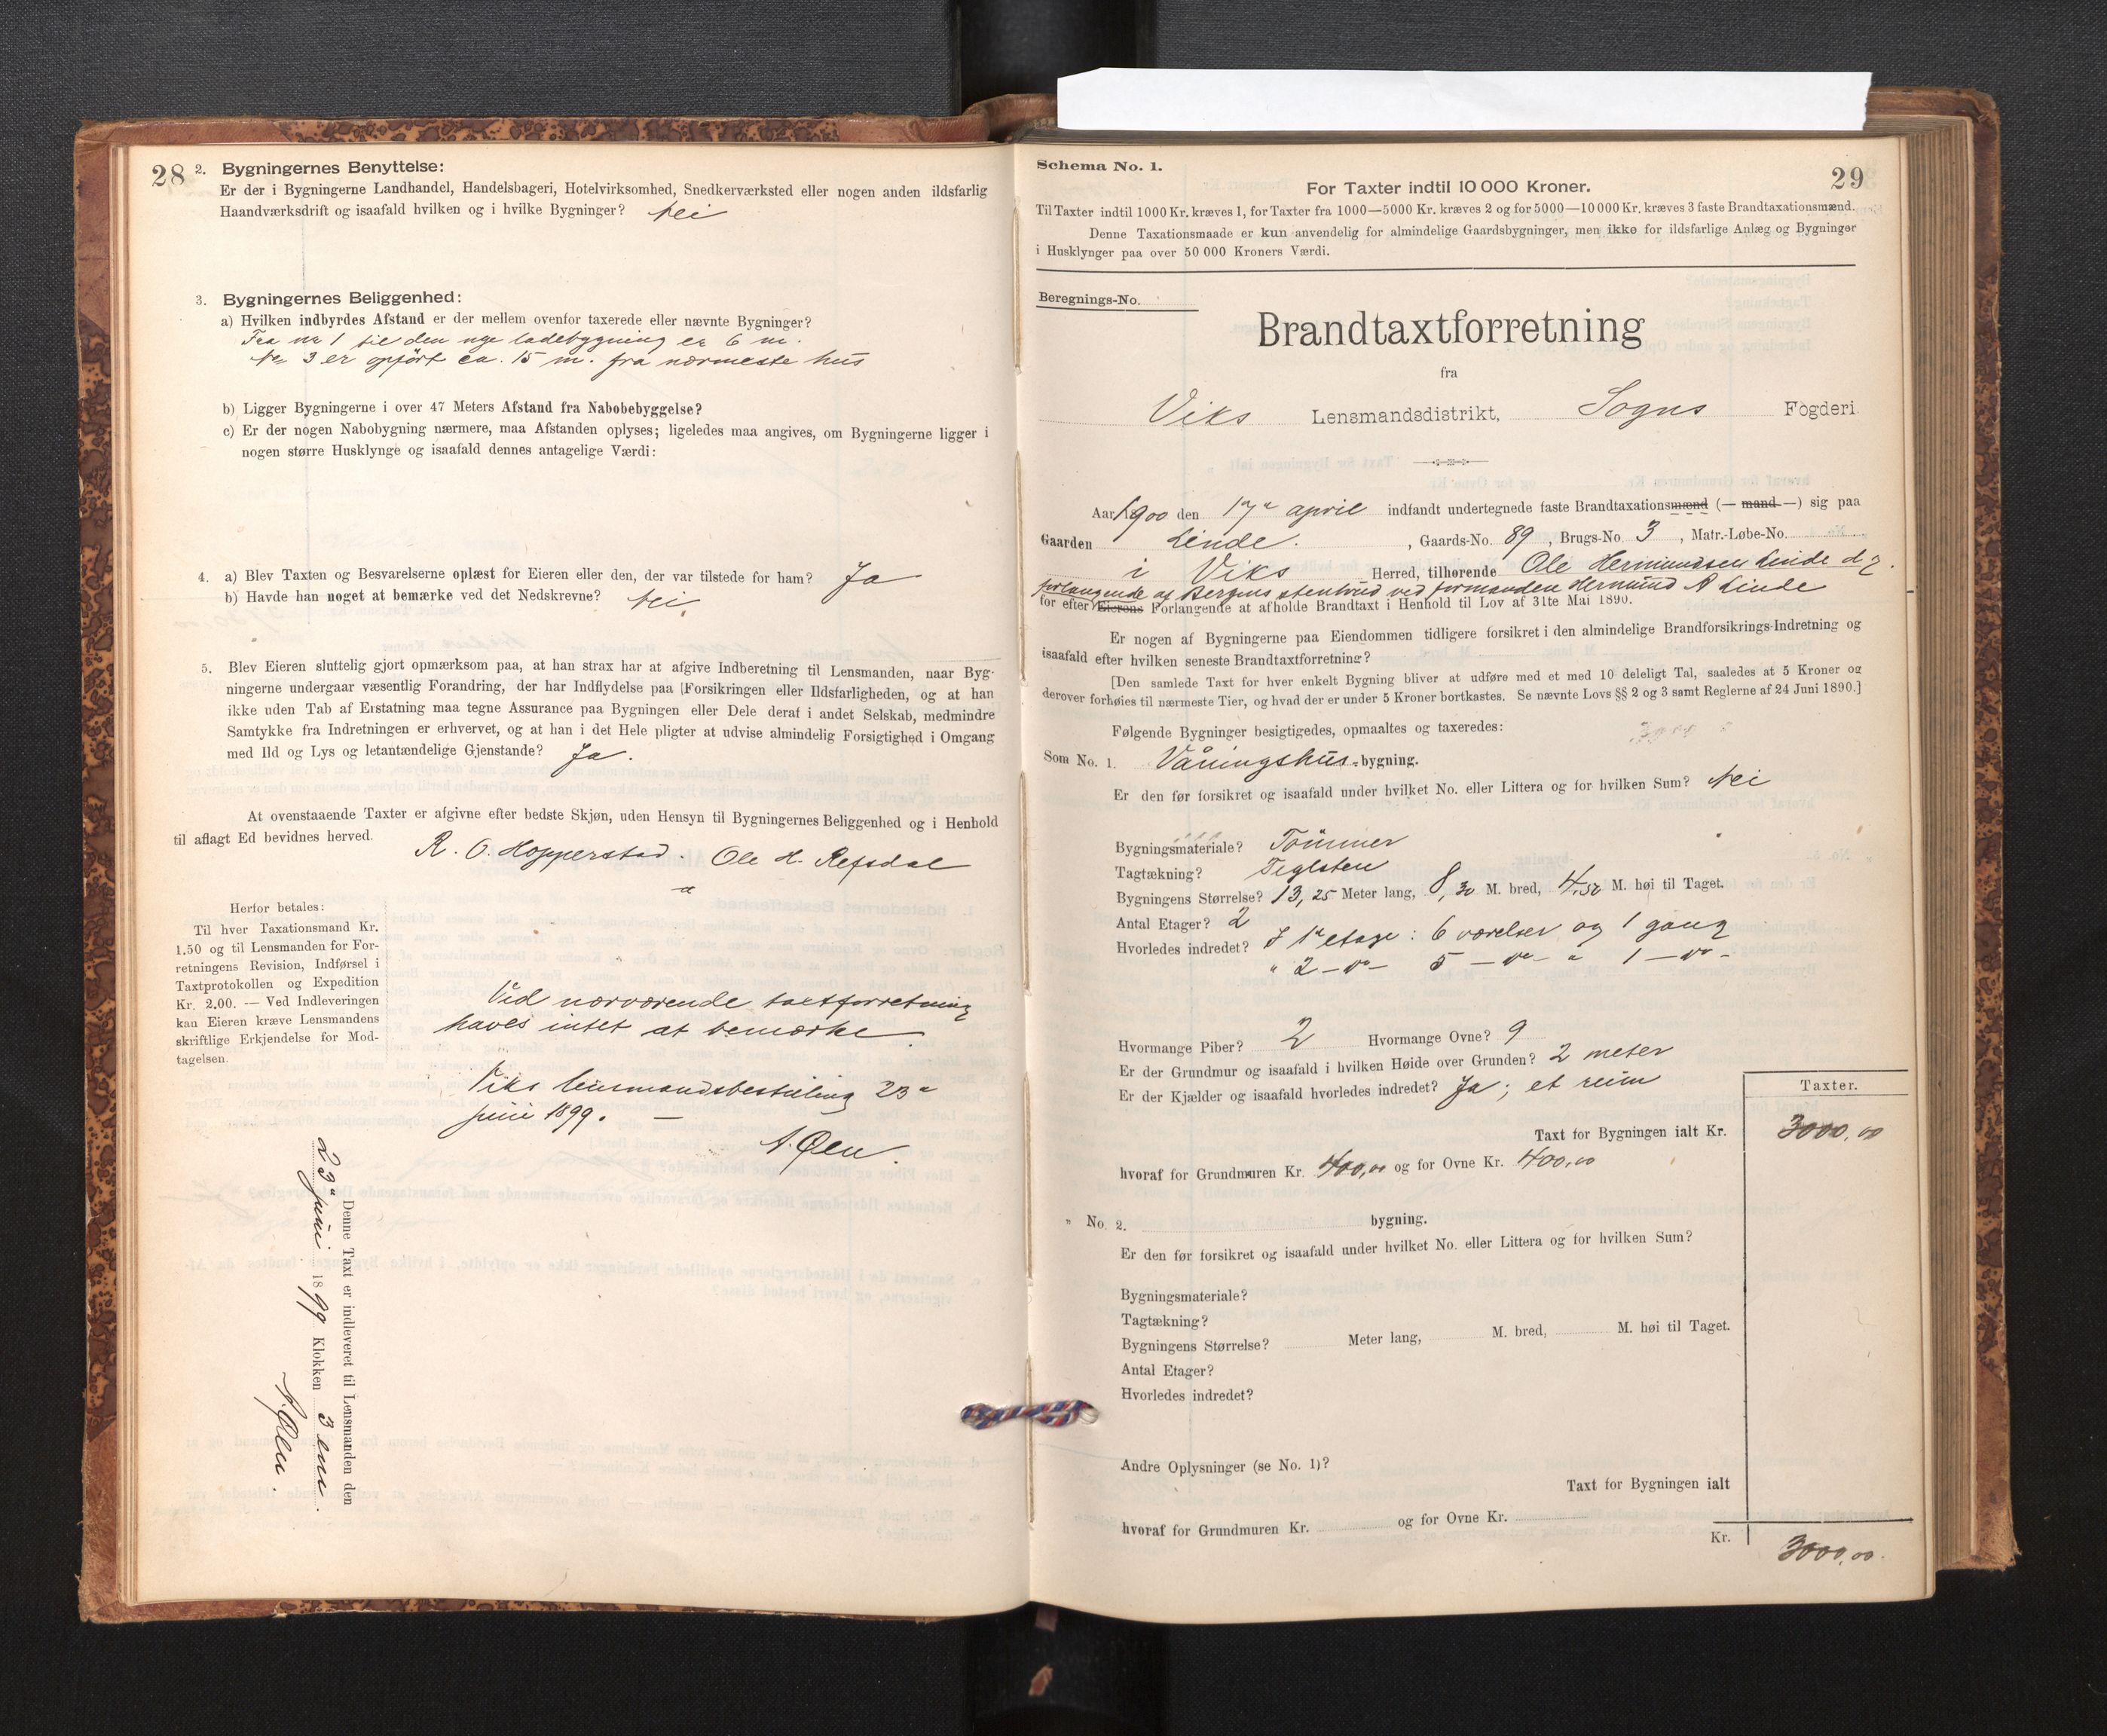 28
2. Bygningernes Benyttelse:
Er der i Bygningerne Landhandel, Handelsbageri, Hotelvirksomhed, Snedkerværksted eller nogen anden ildsfarlig
Haandværksdrift og isaafald hvilken og i hvilke Bygninger? Nei
3. Bygningernes Beliggenhed:
a) Hvilken indbyrdes Afstand er der mellem ovenfor taxerede eller nævnte Bygninger?
Fra nr 1 til den nye ladebygning er 6 m.
Nr 3 er opført ca. 15 m. fra nærmeste hus
b) Ligger Bygningerne i over 47 Meters Afstand fra Nabobebyggelse?
c) Er der nogen Nabobygning nærmere, maa Afstanden oplyses; ligeledes maa angives, om Bygningerne ligger i
nogen større Husklynge og isaafald dennes antagelige Værdi:
4. a) Blev Taxten og Besvarelserne oplæst for Eieren eller den, der var tilstede for ham? Ja
b) Havde han noget at bemærke ved det Nedskrevne? Nei
5. Blev Eieren sluttelig gjort opmærksom paa, at han strax har at afgive Indberetning til Lensmanden, naar Byg-
ningerne undergaar væsentlig Forandring, der har Indflydelse paa Forsikringen eller Ildsfarligheden, og at han
ikke uden Tab af Erstatning maa tegne Assurance paa Bygningen eller Dele deraf i andet Selskab, medmindre
Samtykke fra Indretningen er erhvervet, og at han i det Hele pligter at udvise almindelig Forsigtighed i Omgang
med Ild og Lys og letantændelige Gjenstande? Ja.
At ovenstaaende Taxter er afgivne efter bedste Skjøn, uden Hensyn til Bygningernes Beliggenhed og i Henhold
til aflagt Ed bevidnes herved.
R. O. Hopperstad. Ole H. Refsdal
Herfor betales:
Til hver Taxationsmand Kr.
1.50 og til Lensmanden for For-
retningens Revision, Indførsel i
Taxtprotokollen og Expedition
Kr. 2.00. — Ved Indleveringen
kan Eieren kræve Lensmandens
skriftlige Erkjendelse for Mod-
tagelsen.
Ved nærværende taxtforretning
haves intet at bemærke.
Viks lensmandsbestilling 23de
juni 1899. —
A. Øen.
Denne Taxt er indleveret til Lensmanden den
23de juni 1899 Klokken 3 em.
A. Øen.
Schema No. 1.
29
For Taxter indtil 10 000 Kroner.
Til Taxter indtil 1000 Kr. kræves 1, for Taxter fra 1000—5000 Kr. kræves 2 og for 5000—10 000 Kr. kræves 3 faste Brandtaxationsmænd.
Denne Taxationsmaade er kun anvendelig for almindelige Gaardsbygninger, men ikke for ildsfarlige Anlæg og Bygninger
i Husklynger paa over 50 000 Kroners Værdi.
Beregnings-No.
Brandtaxtforretning
fra
Viks Lensmandsdistrikt, Sogns Fogderi
Aar 1900 den 17de april indfandt undertegnede faste Brandtaxationsmænd (— mand —) sig paa
Gaarden Linde. , Gaards-No. 89 , Brugs-No. 3 , Matr.-Løbe-No.
i Viks Herred, tilhørende Ole Hermundsen Linde
forlangende af Bergens ved formanden Hermund A Linde
for efter Eierens Forlangende at afholde Brandtaxt i Henhold til Lov af 31te Mai 1890.
Er nogen af Bygningerne paa Eiendommen tidligere forsikret i den almindelige Brandforsikrings-Indretning og
isaafald efter hvilken seneste Brandtaxtforretning?
[Den samlede Taxt for hver enkelt Bygning bliver at udføre med et med 10 deleligt Tal, saaledes at 5 Kroner og
derover forhøies til nærmeste Tier, og hvad der er under 5 Kroner bortkastes. Se nævnte Lovs §§ 2 og 3 samt Reglerne af 24 Juni 1890.]
Følgende Bygninger besigtigedes, opmaaltes og taxeredes:
Som No. 1. Våningshus-bygning.
Er den før forsikret og isaafald under hvilket No. eller Littera og for hvilken Sum? Nei
Bygningsmateriale? Tømmer
Tagtækning? Teglsten
Bygningens Størrelse? 13,25 Meter lang, 8,30 M. bred, 4,50 M. høi til Taget.
Antal Etager? 2
Hvorledes indredet? I 1ste etage: 6 værelser og 1 gang
" 2 — do — 5 — do — " 1 — do —
Hvormange Piber? 2 Hvormange Ovne? 9
Er der Grundmur og isaafald i hvilken Høide over Grunden? 2 meter
Er der Kjælder og isaafald hvorledes indredet? Ja; et rum
Taxter.
Taxt for Bygningen ialt Kr. 3000,00
hvoraf for Grundmuren Kr. 400,00 og for Ovne Kr. 400,00
" No. 2. bygning.
Er den før forsikret og isaafald under hvilket No. eller Littera og for hvilken Sum?
Bygningsmateriale?
Tagtækning?
Bygningens Størrelse? Meter lang, M. bred, M. høi til Taget.
Antal Etager?
Hvorledes indredet?
Andre Oplysninger (se No. 1)?
Taxt for Bygningen ialt
hvoraf for Grundmuren Kr. og for Ovne Kr.
Kr. 3000,00.